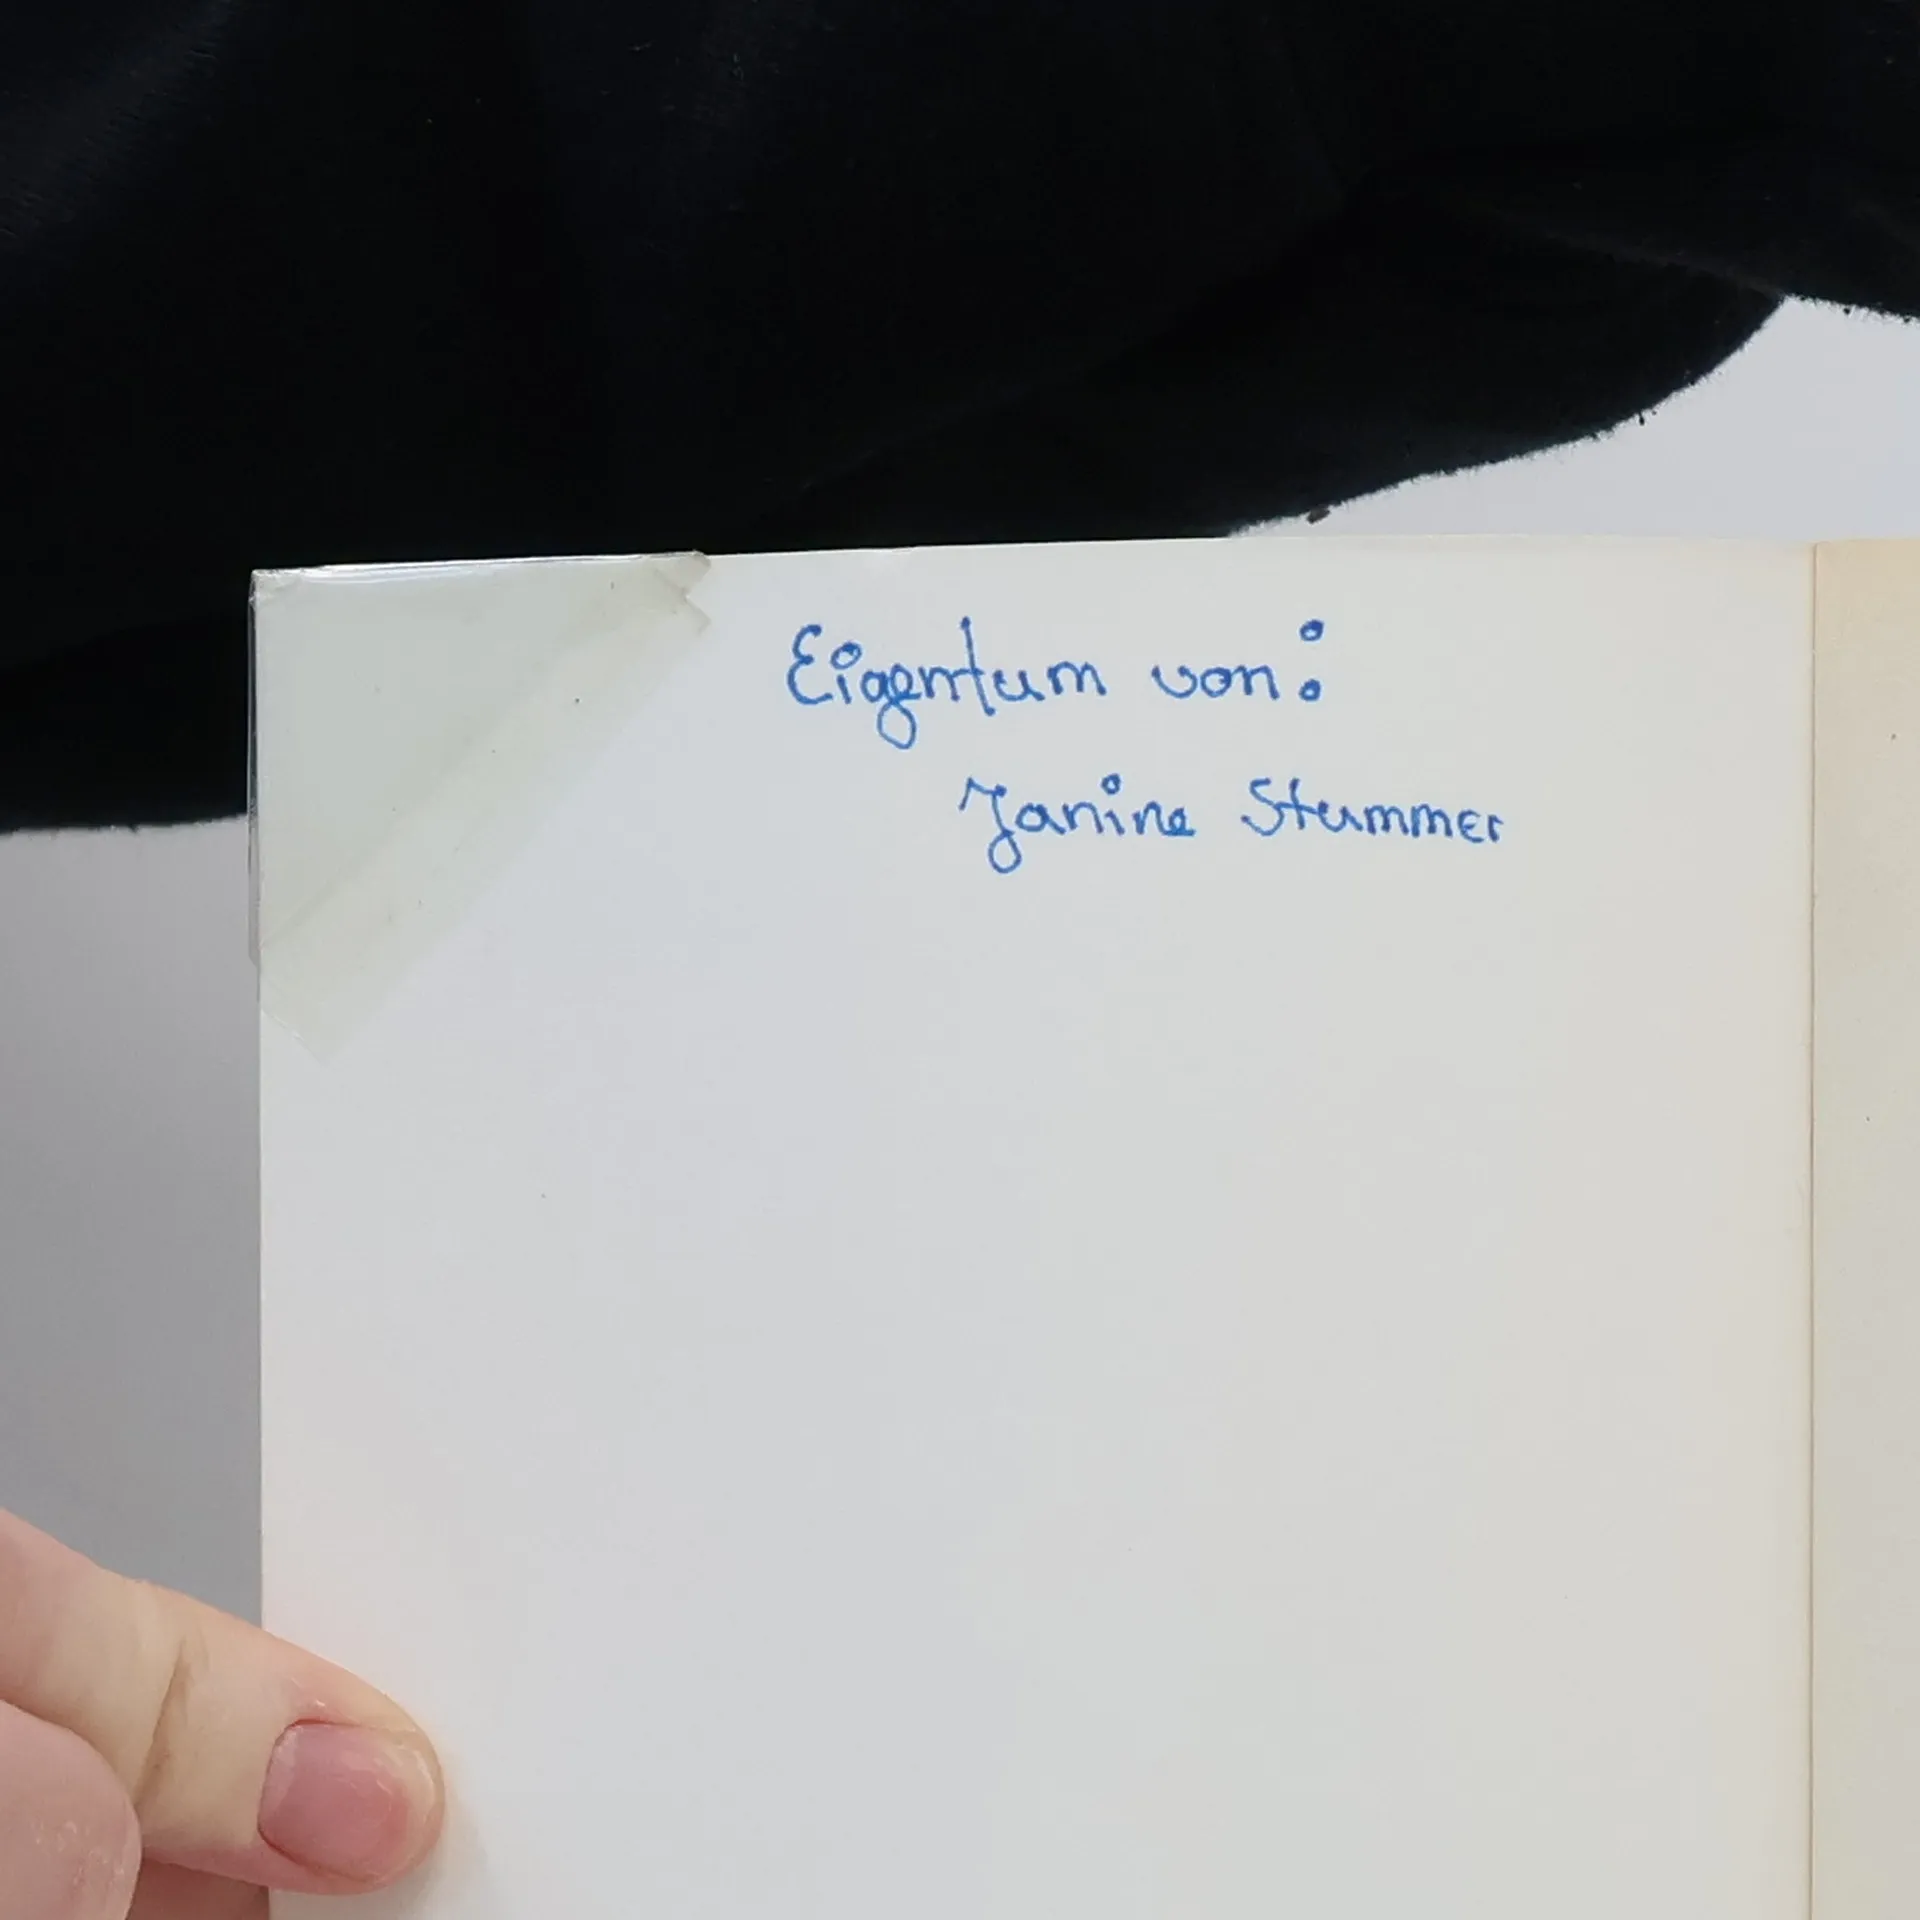 Eigentum von:
Janine Stummer